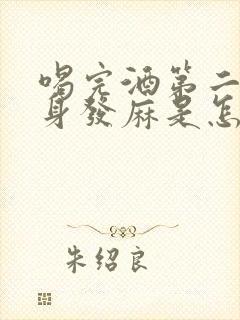 喝完酒第二
身發麻是怎
朱绍良